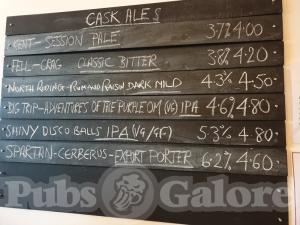 CASK ALES
KENT - SESSION PALE 3.7% 4.00
FELL - CRAG CLASSIC BITTER 3.8% 4.20
NORTH RIDING - RUM AND RAISIN DARK MILD 4.3% 4.50
BIG TRIP - ADVENTURES OF THE PURPLE OM (VG) IPA 4.6% 4.80
SHINY DISCO BALLS IPA (VG/GF) 5.3% 4.80
SPARTAN - CERBERUS - EXPORT PORTER 6.2% 4.60
Pubs Galore